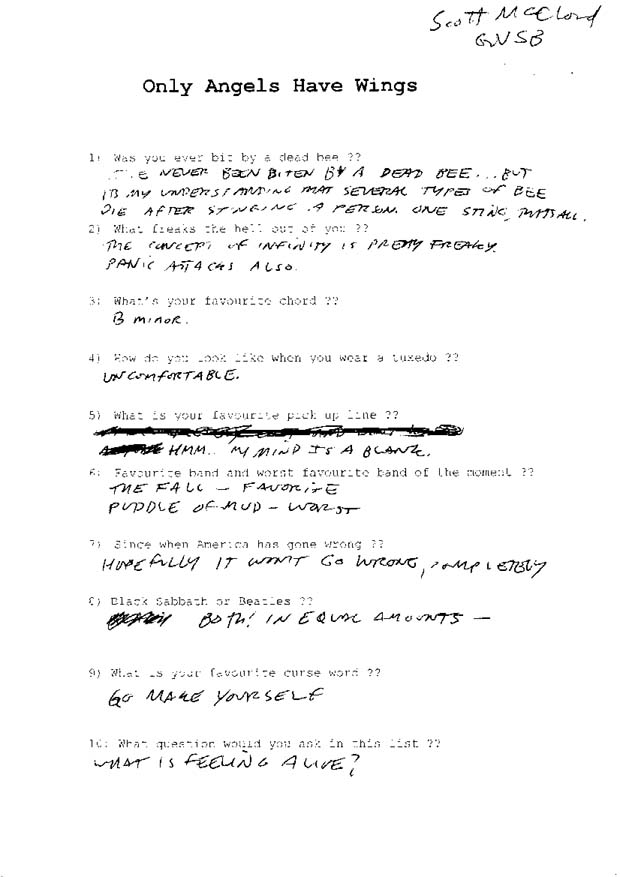 Scott McCloud
GVSB
Only Angels Have Wings
1) Was you ever bit by a dead bee ??
I'VE NEVER BEEN BITEN BY A DEAD BEE... BUT
IT'S MY UNDERSTANDING THAT SEVERAL TYPES OF BEE
DIE AFTER STINGING A PERSON. ONE STING, THATS ALL.
2) What freaks the hell out of you ??
THE CONCEPT OF INFINITY IS PRETTY FREAKY.
PANIC ATTACKS ALSO.
3) What's your favourite chord ??
B MINOR.
4) How do you look like when you wear a tuxedo ??
UNCOMFORTABLE.
5) What is your favourite pick up line ??
HMM.. MY MIND IS A BLANK.
6) Favourite band and worst favourite band of the moment ??
THE FALL - FAVORITE
PUDDLE OF MUD - WORST
7) Since when America has gone wrong ??
HOPEFULLY IT WON'T GO WRONG, COMPLETELY
8) Black Sabbath or Beatles ??
BOTH! IN EQUAL AMOUNTS -
9) What is your favourite curse word ??
GO MAKE YOURSELF
10) What question would you ask in this list ??
WHAT IS FEELING ALIVE?